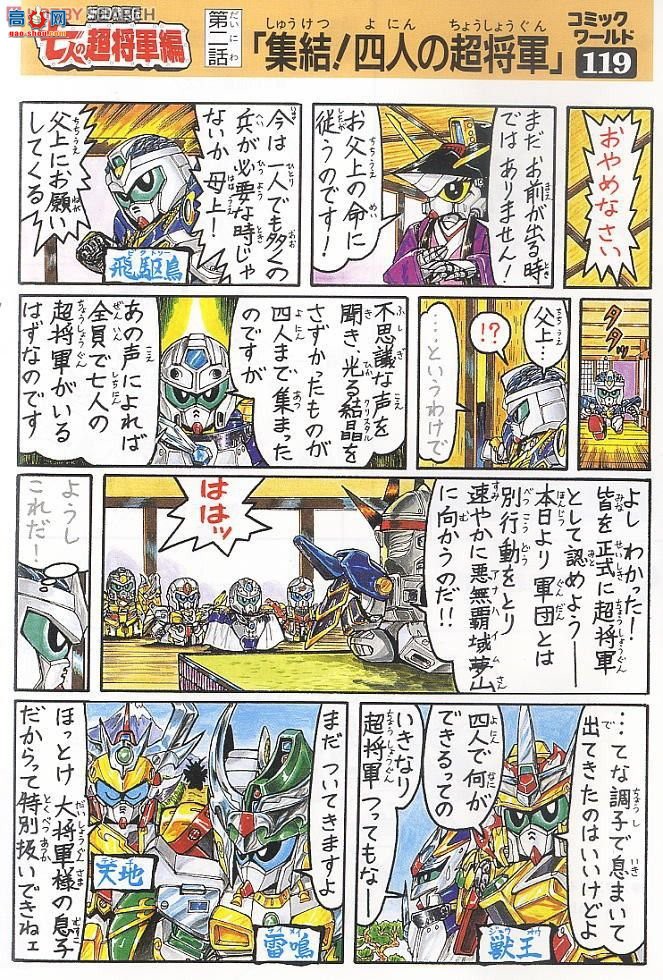 七人の超将軍編
第二話
だいにわ
「集結！四人の超将軍」
しゅうけつ よにん ちょうしょうぐん
コミック
ワールド
119
おやめなさい
まだお前が出る時
ではありません！
お父上の命に
従うのです！
今は一人でも多くの
兵が必要な時じゃ
ないか母上！
父上にお願い
してくる
飛駆鳥
ビクトリー
タタッ
父上…
!?
…というわけで
不思議な声を
聞き、光る結晶を
さずかったものが
四人まで集まった
のですが
あの声によれば
全員で七人の
超将軍がいる
はずなのです
よしわかった！
皆を正式に超将軍
として認めよう――
本日より軍団とは
別行動をとり
速やかに悪無覇域夢山
に向かうのだ!!
ははッ
ようし
これだ！
…てな調子で息まいて
出てきたのはいいけどよ
四人で何が
できるっての
いきなり
超将軍つってもなー
獣王
まだついてきますよ
雷鳴
ほっとけ大将軍様の息子
だからって特別扱いできねェ
天地